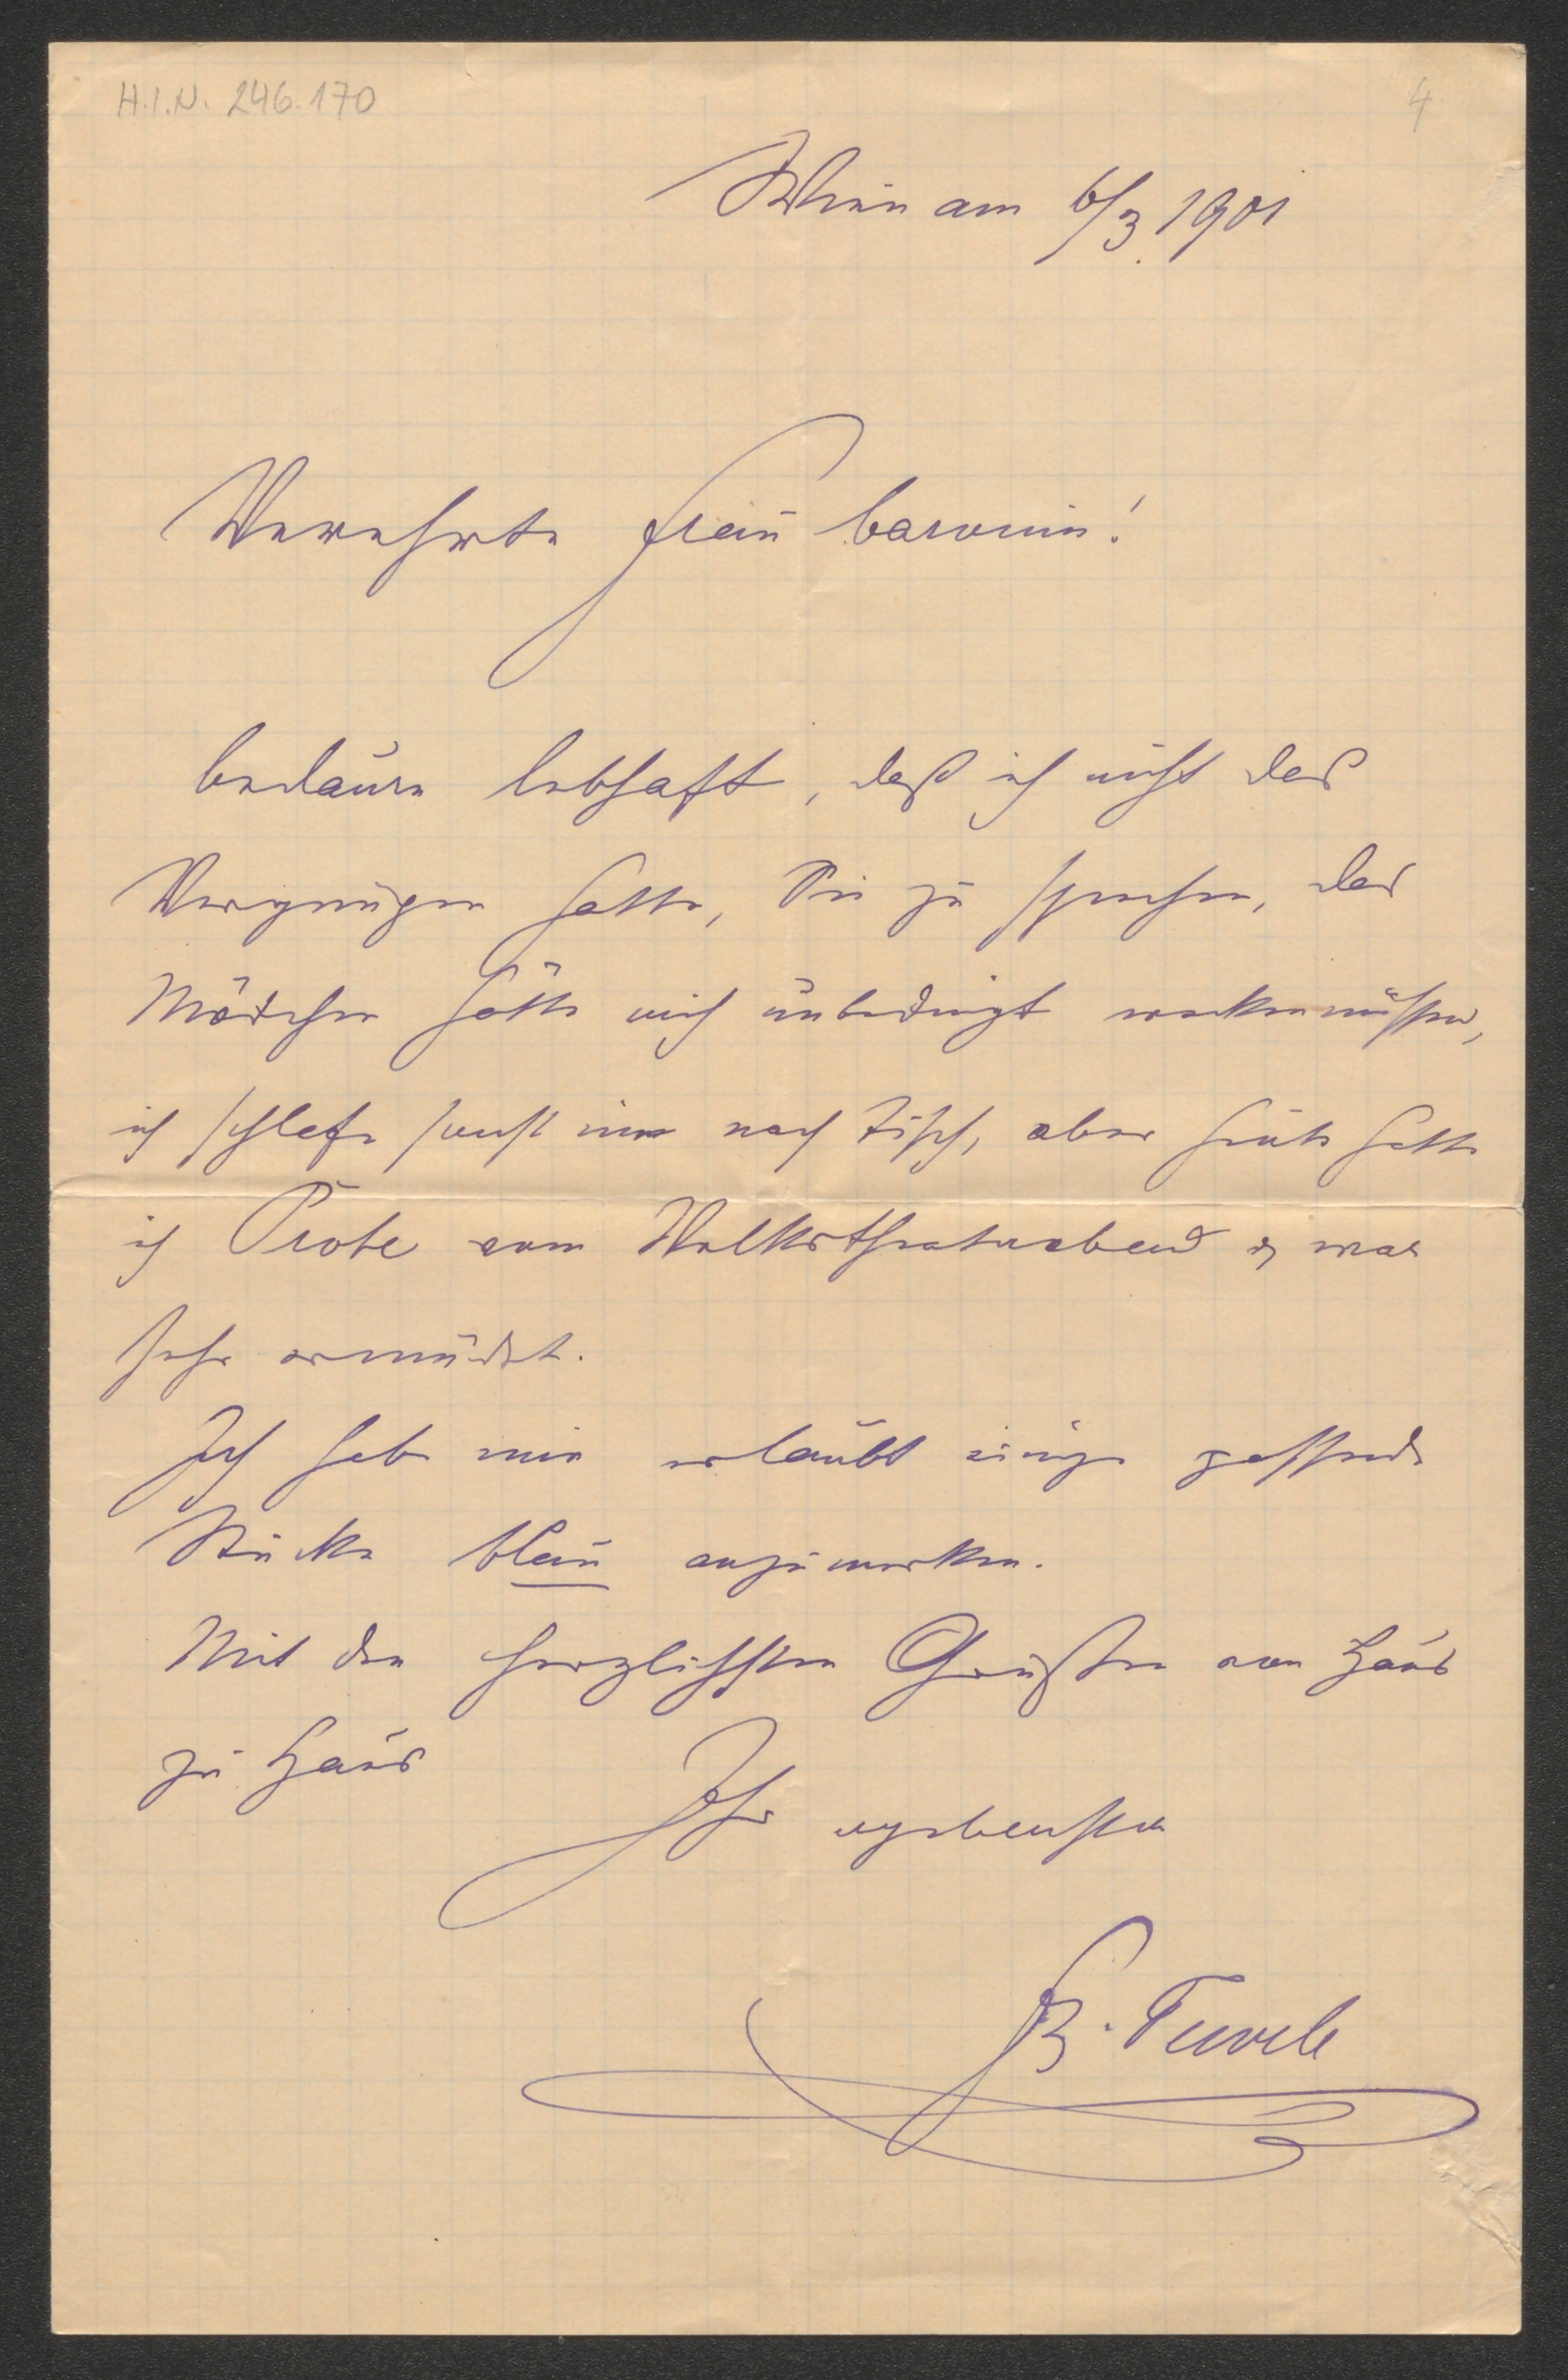 H.I.N. 246.170
4
Wien am 6/3. 1901
Verehrte Frau baronin!
bedaure lebhaft, daß ich nicht das
Vergnügen hatte, Sie zu sprechen, das
Mädchen hätte mich unbedingt wecken müssen,
ich schlafe sonst nie nach Tisch, aber heute hatte
ich Probe vom Volkstheaterabend & war
sehr ermüdet.
Ich habe mir erlaubt einige passende
Stücke blau anzumerken.
Mit den herzlichsten Grüßen von Haus
zu Haus
Ihr ergebenster